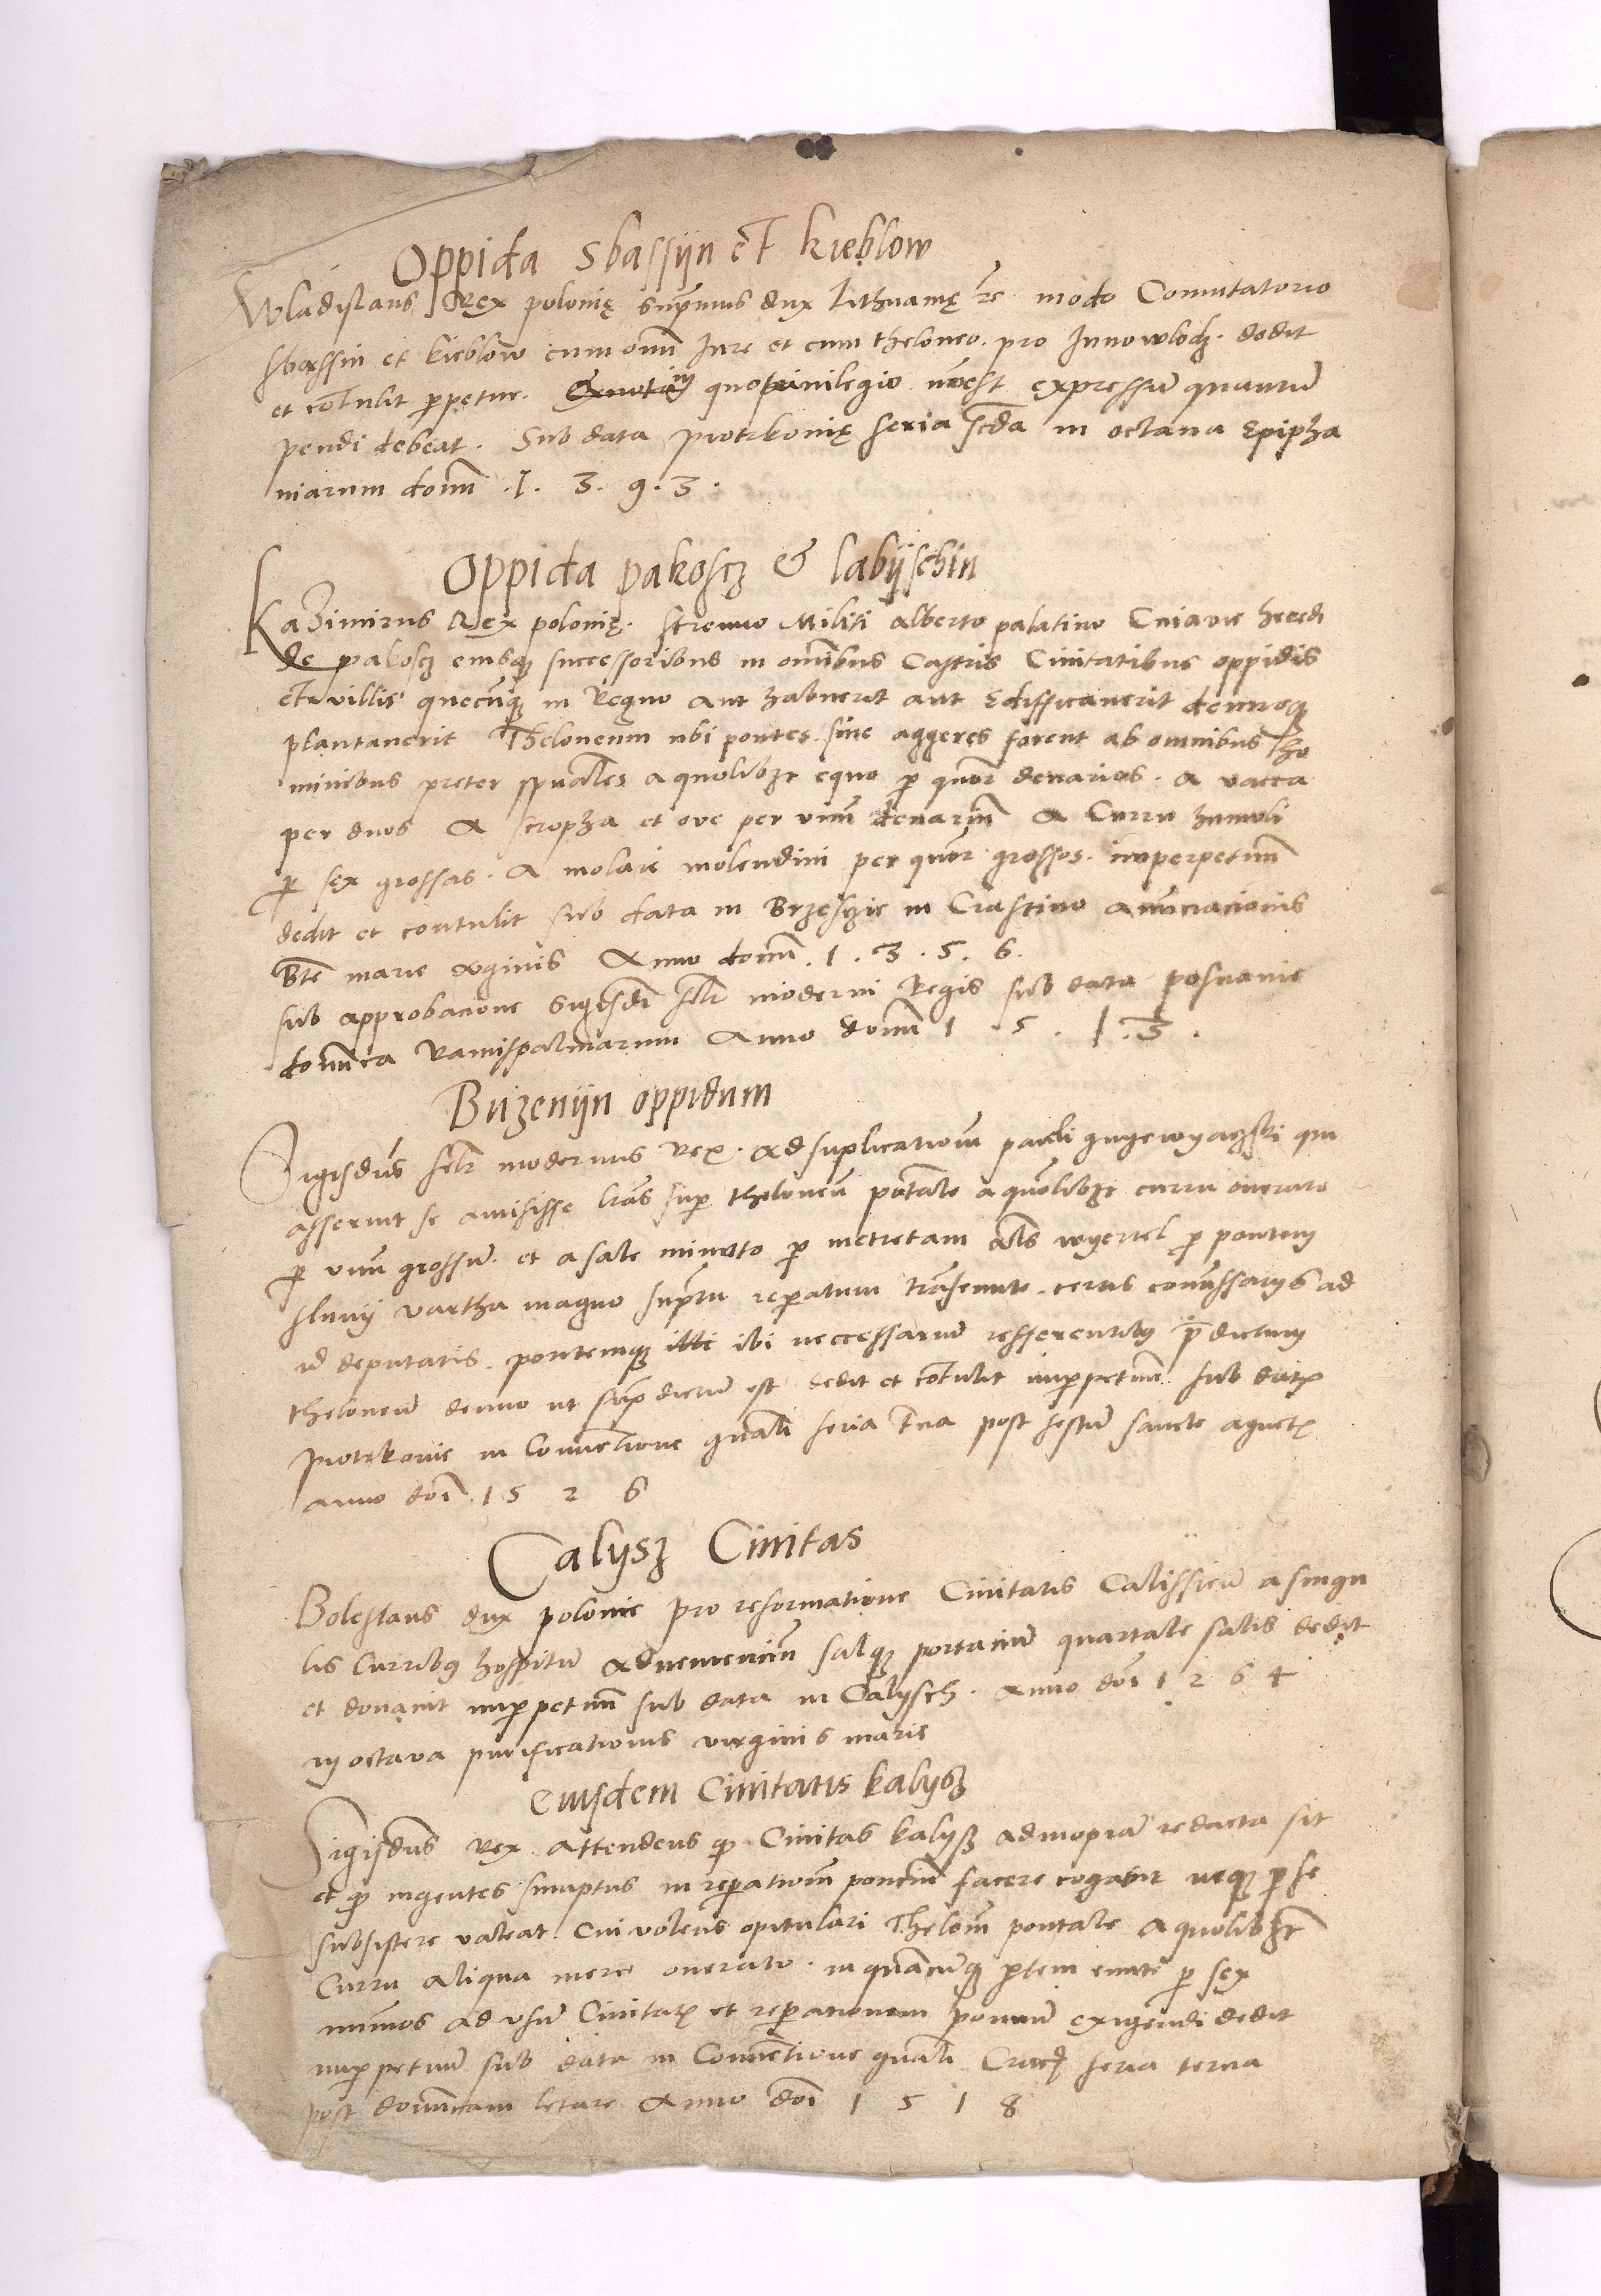 Oppida Sbassijn et Kieblow
Wladislaus Rex polonię supremus dux Lithuanię etc modo Comutatorio
Sbassin et Kieblow cum omni Iure et cum theloneo. pro Innowlodz. dedit
et cōtulit ppetue. in quo priuilegio nō est expressū quantū
pendi debeat. Sub data piotrkonię feria scda in octaua Epipha
niarum domī .1. 3. 9. 3.
Oppida pakoscz & labijschin
Kazimirus Rex polonię. strenuo Militi alberto palatino Cuiauie heredi
de pakoscz eiusq successoribus in omībus Castris Ciuitatibus oppidis
et villis quecūq in Regno aut habuerit aut Edifficauerit denuoq
plantauerit Theloneum ubi pontes siue aggeres forent ab omnibus ho
minibus preter spūales a quolibet equo p quor denarios. a vacca
per duos a scropha et oue per vnū denariū a Curru humuli
p sex grossas. a molari molendini per quor grossos. inperpetuū
dedit et contulit sub data in Brzesczie in Crastino anūnciacionis
Bte marie vginis Anno domī. 1. 3. 5. 6.
sub approbacione Sigisdi moderni Regis sub data posnanie
domīca Ramispalmarum Anno domī 1 .5. 1.3.
Buzenijn oppidum
Sigisdūs modernus Rex. ad suplicationē pauli qui
asseruit se amisisse lras sup theloneū pontale a quolibet curru onerato
p vnū grossū. et a sale minuto p metretam als wyertel p pontem
fluuij vartha magno suptu repatum trāseunte. certis comissarijs ad
id deputatis. pontemq illi ibi neccessariū refferentibus pdictum
theloneū denuo ut supdictū est dedit et cōtulit inppetuū sub data
piotrkouie in Conuētione gnali feria tcia post festū sancte agnet
anno domi .1 5 2 6
Calijsz Ciuitas
Boleslaus dux polonie pro reformatione Ciuitatis Calissien a singu
lis Curribus hospitū aduenienciū salq portaciū quartale salis dedit
et donauit inppetuū sub data in Calysch. Anno doi 1 2 6 4
in octaua purificationis virginis marie
Eiusdem Ciuitatis Kalijsz
Sigisdūs Rex attendens q Ciuitas Kalysz ad inopiā redacta sit
et q ingentes sumptus in repationē ponciū facere cogatur neq p se
subsistere valeat Cui volens opitulari Thelonū pontale a quolibet
Curru aliqua merce onerato. in quācūq ptem eunte p sex
nūmos ad vsū Ciuitat et repationem pontiū exigendi dedit
inppetuū sub data in Conuētione gnali Crac feria tercia
post dominicam letare Anno doi 1 5 1 8